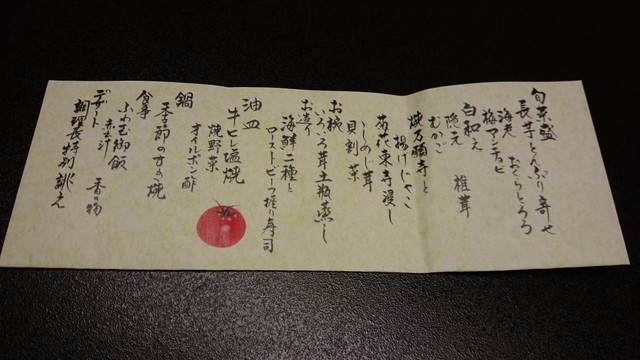 旬菜盛
長芋とんぶり寄せ
海老 おくらとろろ
梅アンチョビ
白和え
隠元 椎茸
むかご
焼万願寺と
揚げじゃこ
菊花東寺浸し
しめじ茸
貝割菜
お椀
いろいろ茸土瓶蒸し
お造り
海鮮二種と
ローストビーフ握り寿司
油皿
牛ヒレ塩焼
焼野菜
オイルポン酢
鍋
季節のすき焼
食事
ふわ玉御飯
赤出汁 香の物
デザート
調理長特別誂え